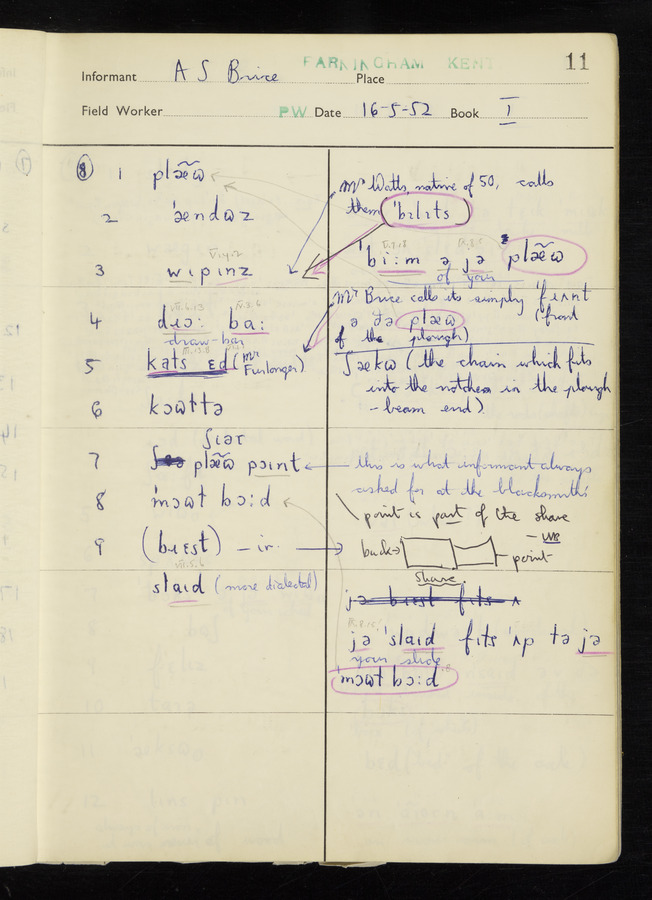 FARNINGHAM KENT 11
Informant A S Brice Place
Field Worker PW Date 16-5-52 Book I
⑧ 1 plæ̃ɷ
2 'ændɷz
3 wɪpɪnz
4 dɹɔ: ba:
draw-bar
5 kats ɛd (Mr Furlonger)
6 kɔɷttə
ʃɪəɾ
7 plæ̃ɷ pɔɪnt
8 mɔɷɫ bɔ:d
9 (bɹɛst) – ir.
slaɪd (more dialectal)
Mr Watts, native of 50, calls
them 'bɪlɪts
'bi:m ə jə plæ̃ɷ
of your
Mr Brice calls its simply fɹʌnt
(front
ə ðə plæɷ
of the plough)
ʃækɷ (the chain which fits
into the notches in the plough
-beam end)
this is what informant always
asked for at the blacksmiths
point is part of the share
– WE
back point
share
jə bɹɛst fɪts ʌ
jə 'slaɪd fɪts 'ʌp tə jə
your slide
'mɔɷɫ bɔ:d